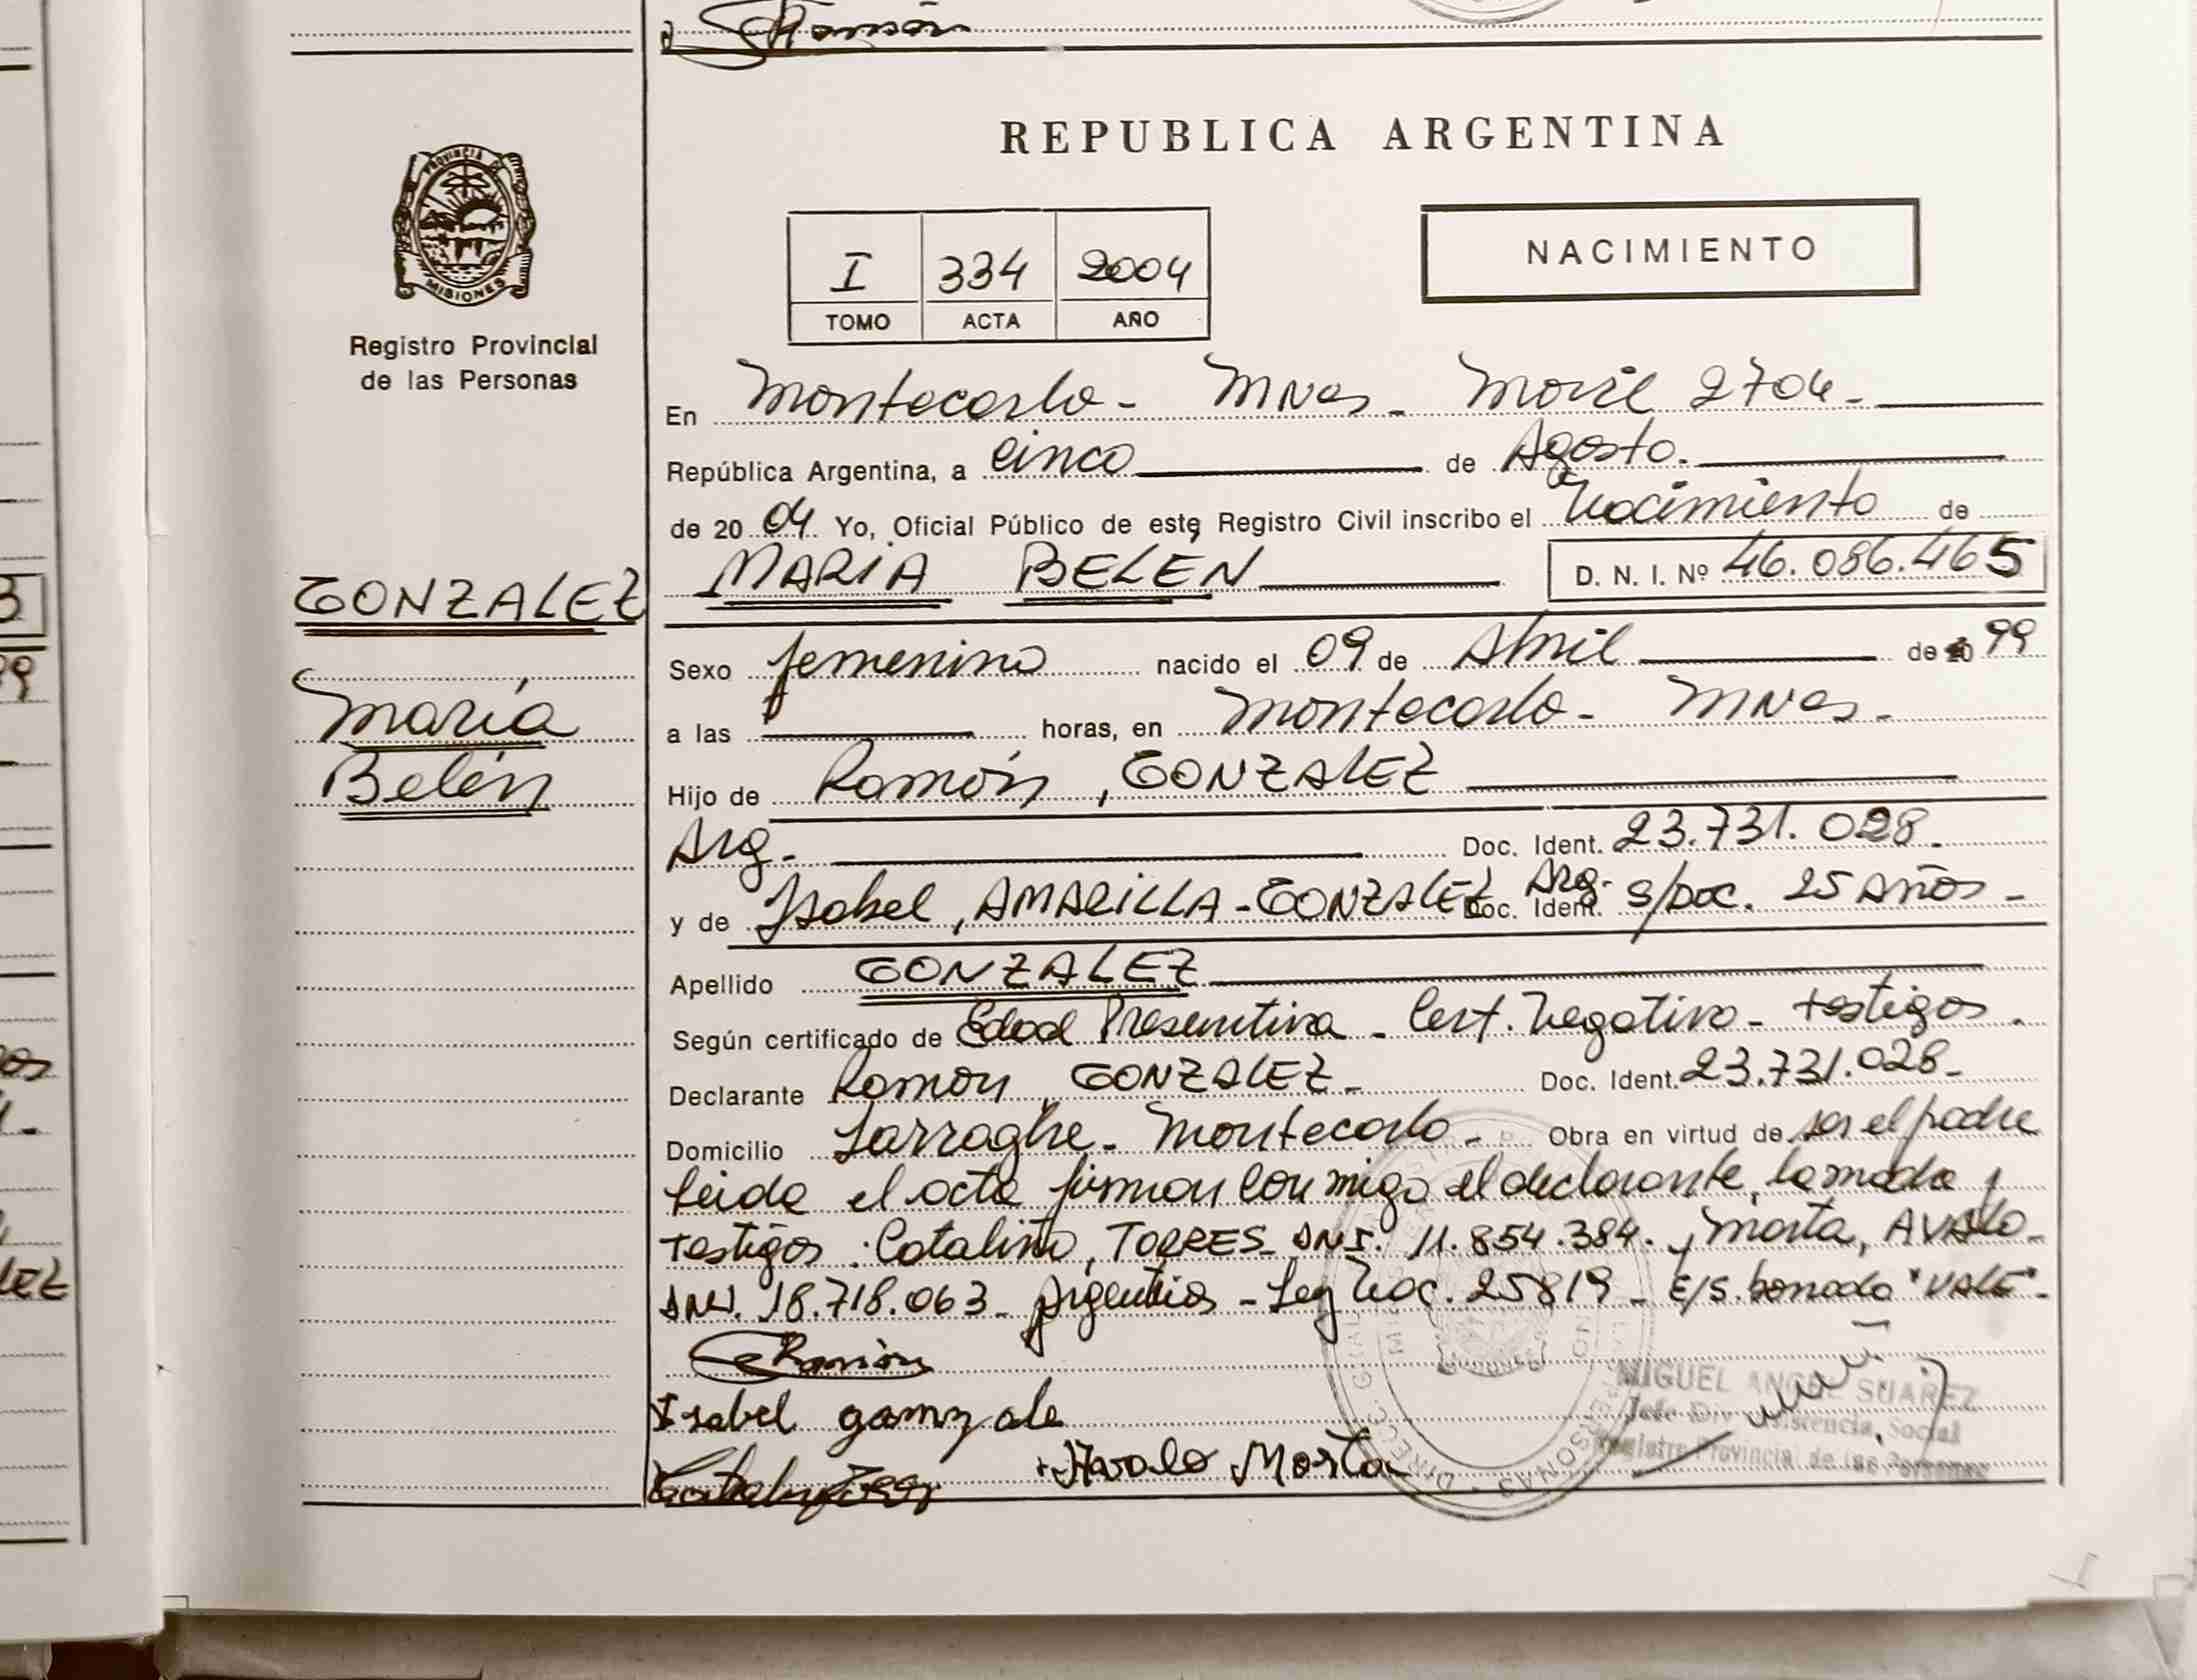 Ramón
REPUBLICA ARGENTINA
PROVINCIA DE
MISIONES
Registro Provincial
de las Personas
I 334 2004
TOMO ACTA AÑO
NACIMIENTO
En Montecarlo - Mnes - Movil 2704 -
República Argentina, a cinco de Agosto.
de 20 04 Yo, Oficial Público de este Registro Civil inscribo el Nacimiento de
MARIA BELEN D. N. I. Nº 46.086.465
GONZALEZ
María
Belén
Sexo femenino nacido el 09 de Abril de 99
a las horas, en Montecarlo - Mnes -
Hijo de Ramón, GONZALEZ
Arg. - Doc. Ident. 23.731.028.
y de Isabel, AMARILLA - GONZALEZ Arg. Doc. Ident. s/Doc. 25 Años -
Apellido GONZALEZ
Según certificado de Edad Presuntiva - Cert. Negativo - testigos.
Declarante Ramón, GONZALEZ - Doc. Ident. 23.731.028 -
Domicilio Larraghe - Montecarlo - Obra en virtud de ser el padre
leida el acta firman conmigo el declarante, la madre y
testigos: Catalino, TORRES - DNI. 11.854.384. y Marta, AVALO -
DNI. 18.718.063 - Argentinos - Leg Nac. 25819 - E/S. borrado "VALE" -
Ramón
Isabel gamzale
Avalo Marta
MIGUEL ANGEL SUAREZ
Jefe Div. Asistencia Social
Registro Provincial de las Personas